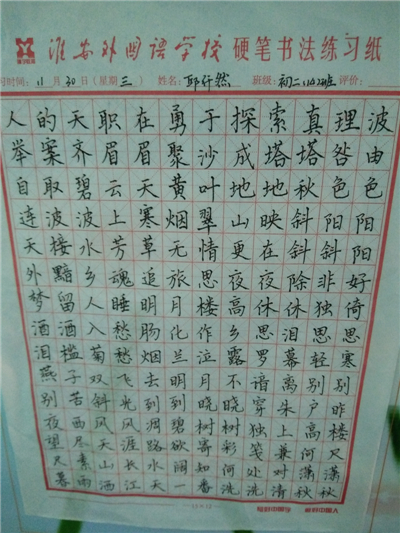 淮安外国语学校 硬笔书法练习纸
时间：11月30日（星期三） 姓名：邱仟然 班级：初二(12)班 评价：
人的天职在勇于探索真理波
举案齐眉眉聚沙成塔塔咎由
自取碧云天黄叶地地秋色色
连波波上寒烟翠山映斜阳阳
天接水芳草无情更在斜斜阳
外黯乡魂追旅思夜夜除非好
梦留人睡明月楼高休休独倚
酒酒入愁愁肠化作乡思泪思思
泪槛菊愁烟兰泣露罗幕轻寒
燕子双飞去明月不谙离别别
别苦斜光到到晓晓穿朱户昨
夜西风凋碧树树彩独上高楼
望尽天涯路欲寄何笺兼何尺
尺素山长水阔知何处对潇潇
暮雨洒江天一番洗洗清秋秋